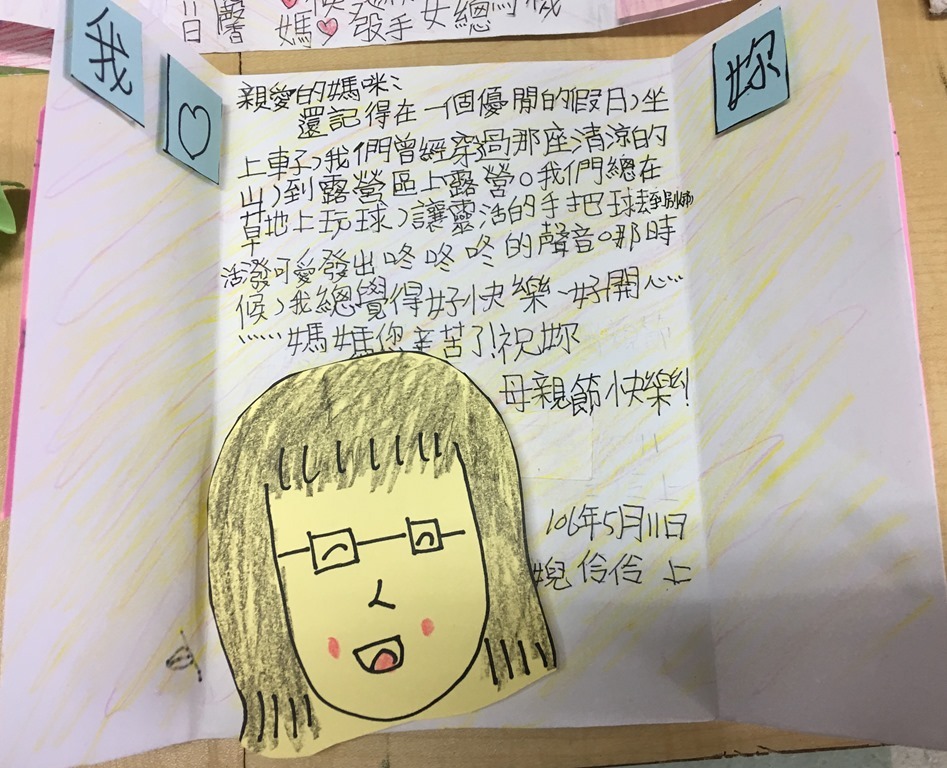 日 馨 媽♥殺手女總
我
♡
妳
親愛的媽咪：
還記得在一個優閒的假日，坐
上車子，我們曾經穿過那座清涼的
山，到露營區上露營。我們總在
草地上玩球，讓靈活的手把球
活潑可愛發出咚咚咚的聲音。那時
候，我總覺得好快樂、好開心……
……媽媽您辛苦了！祝妳
母親節快樂！
106年5月11日
伶伶 上